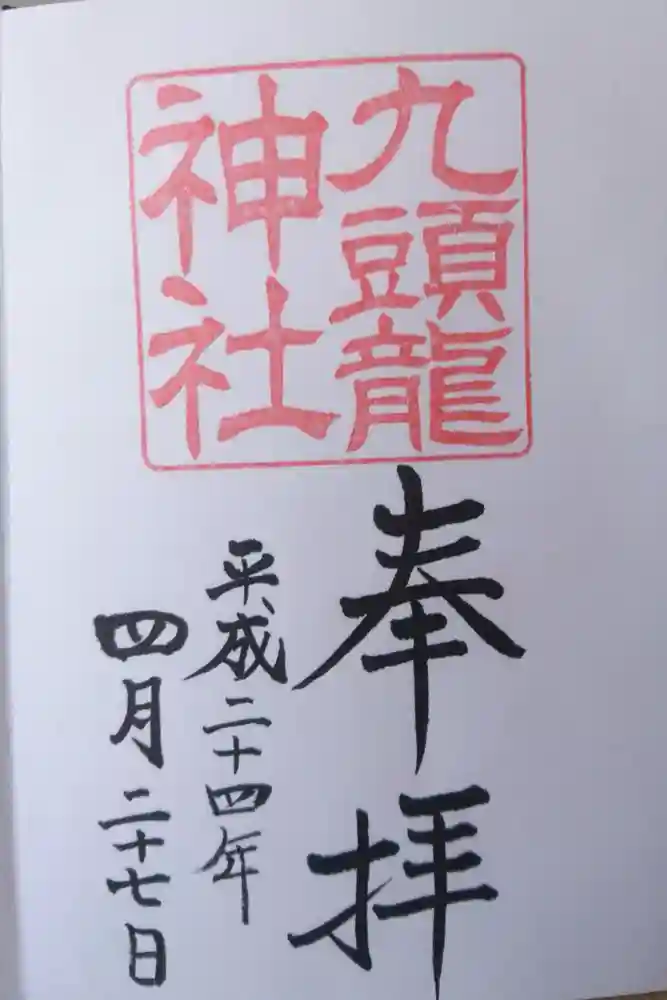 九頭龍
神社
奉拝
平成二十四年
四月二十七日